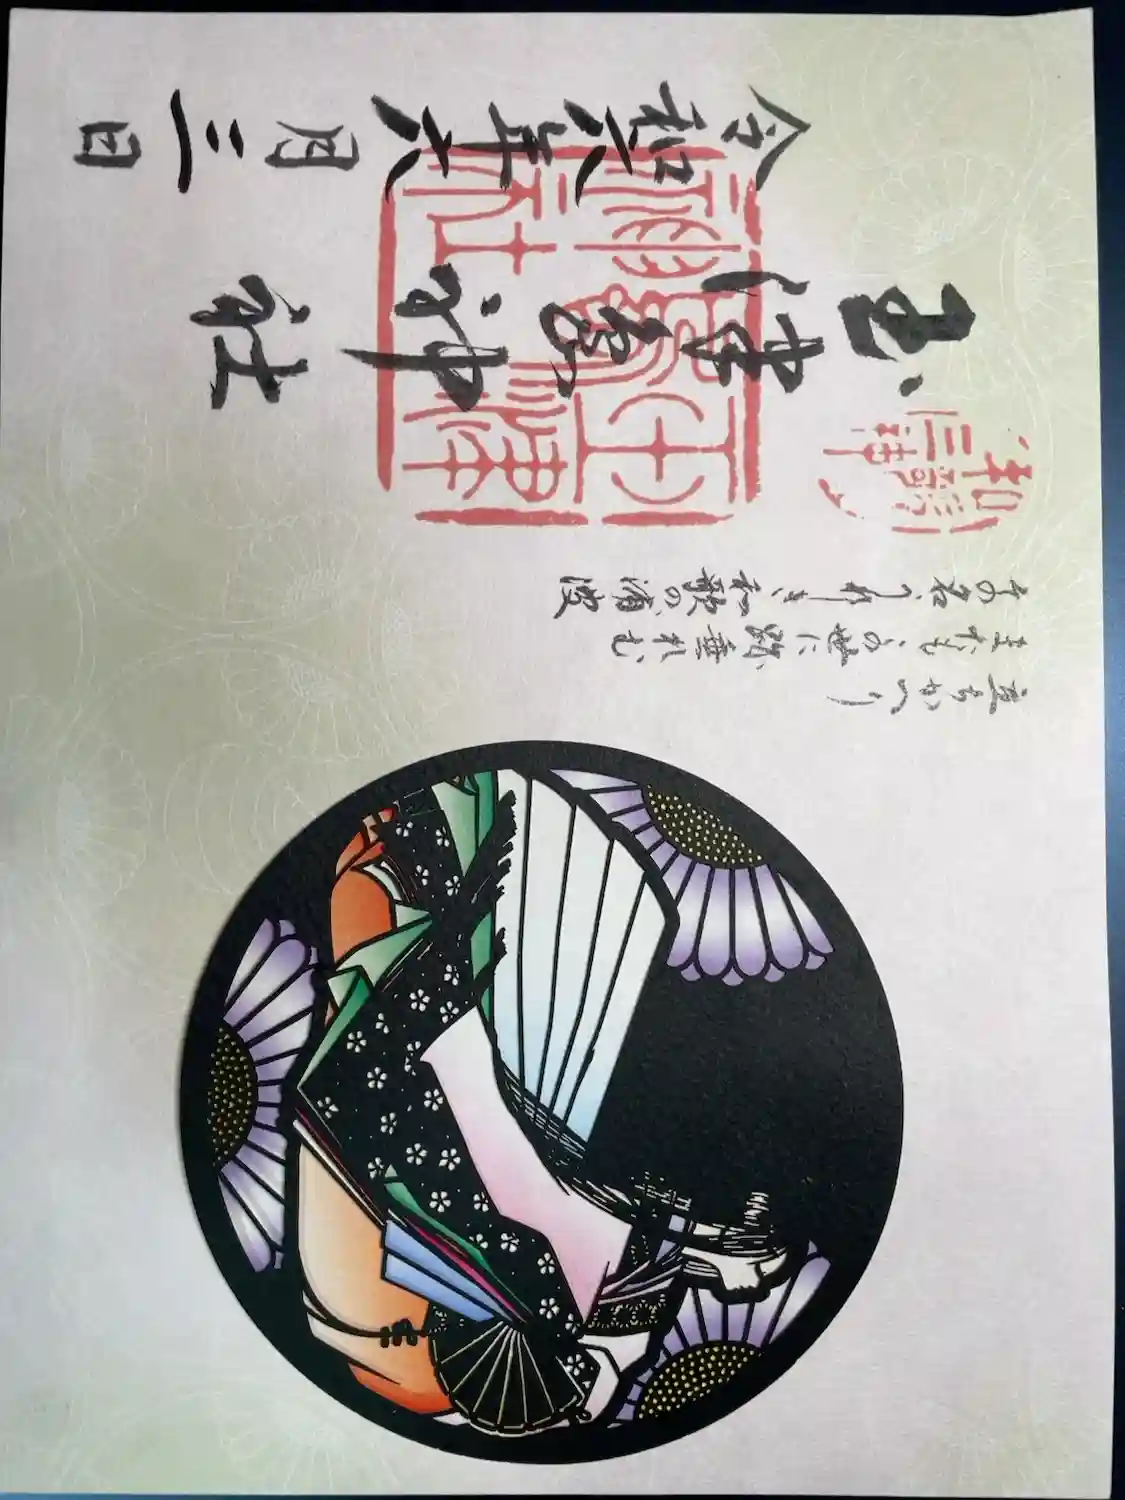 立ちかへり
またもこの世に跡垂れむ
その名うれしき和歌の浦波
和歌三神
玉津島神社
玉津嶋神社
令和六年六月三日